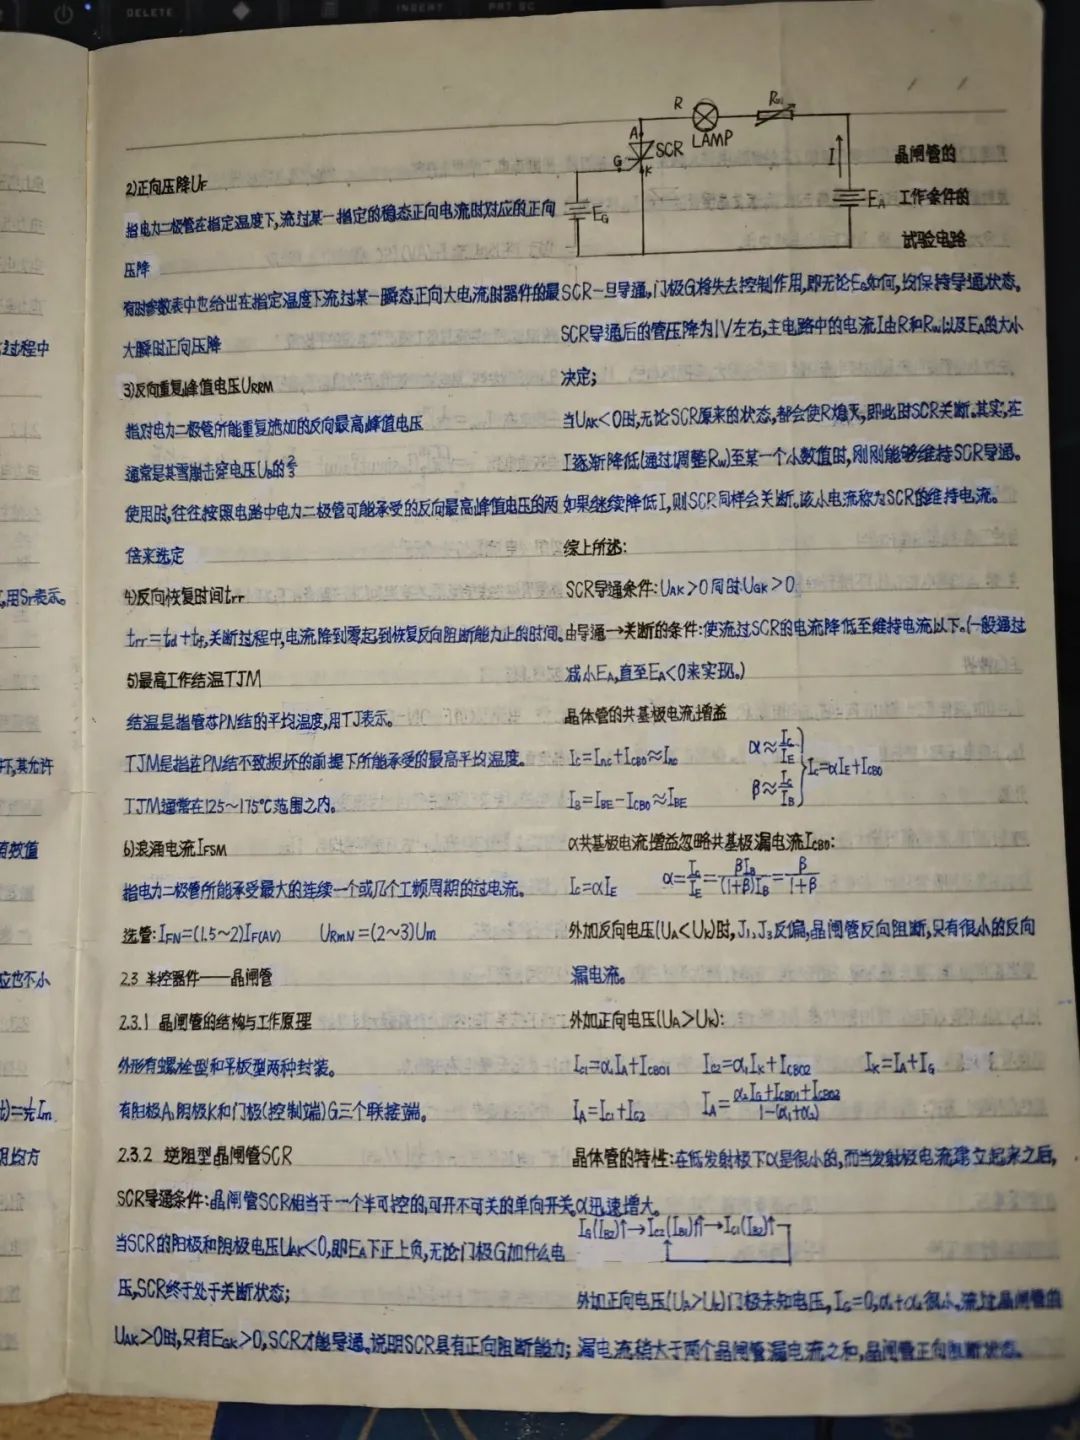 DELETE
INSERT
PRT SC
过程中
,用Sr表示。
坏,其允许
有效值
应也不小
2)正向压降UF
指电力二极管在指定温度下,流过某一指定的稳态正向电流时对应的正向
压降
有时参数表中也给出在指定温度下流过某一瞬态正向大电流时器件的最
大瞬时正向压降
3)反向重复峰值电压URRM
指对电力二极管所能重复施加的反向最高峰值电压
通常是其雪崩击穿电压UB的2/3
使用时,往往按照电路中电力二极管可能承受的反向最高峰值电压的两
倍来选定
4)反向恢复时间trr
trr=td+tf,关断过程中,电流降到零起到恢复反向阻断能力止的时间。
5)最高工作结温TJM
结温是指管芯PN结的平均温度,用TJ表示。
TJM是指在PN结不致损坏的前提下所能承受的最高平均温度。
TJM通常在125~175℃范围之内。
6)浪涌电流IFSM
指电力二极管所能承受最大的连续一个或几个工频周期的过电流。
选管:IFN=(1.5~2)IF(AV) URmN=(2~3)Um
2.3 半控器件——晶闸管
2.3.1 晶闸管的结构与工作原理
外形有螺栓型和平板型两种封装。
有阳极A,阴极K和门极(控制端)G三个联接端。
2.3.2 逆阻型晶闸管SCR
SCR导通条件:晶闸管SCR相当于一个半可控的,可开不可关的单向开关。
当SCR的阳极和阴极电压UAK<0,即EA下正上负,无论门极G加什么电
压,SCR终于处于关断状态;
UAK>0时,只有EGK>0,SCR才能导通。说明SCR具有正向阻断能力;
R
Rw
A
LAMP
SCR
G
K
I
EG
EA
晶闸管的
工作条件的
试验电路
SCR一旦导通,门极G将失去控制作用,即无论EG如何,均保持导通状态。
SCR导通后的管压降为1V左右,主电路中的电流I由R和Rw以及EA的大小
决定;
当UAK<0时,无论SCR原来的状态,都会使R熄灭,即此时SCR关断。其实,在
I逐渐降低(通过调整Rw)至某一个小数值时,刚刚能够维持SCR导通。
如果继续降低I,则SCR同样会关断。该小电流称为SCR的维持电流。
综上所述:
SCR导通条件:UAK>0同时UGK>0
由导通→关断的条件:使流过SCR的电流降低至维持电流以下。(一般通过
减小EA,直至EA<0来实现。)
晶体管的共基极电流增益
IC=Inc+ICBO≈Inc α≈IC/IE
IB=IBE-ICBO≈IBE β≈IC/IB } IC=αIE+ICBO
α共基极电流增益忽略共基极漏电流ICBO:
IC=αIE α=IC/IE=βIB/(1+β)IB=β/1+β
外加反向电压(UA<UK)时,J1、J3反偏,晶闸管反向阻断,只有很小的反向
漏电流。
外加正向电压(UA>UK):
IC1=α1IA+ICBO1 IC2=α2IK+ICBO2 IK=IA+IG
IA=IC1+IC2 IA=α2IG+ICBO1+ICBO2/1-(α1+α2)
晶体管的特性:在低发射极下α是很小的,而当发射极电流建立起来之后,
α迅速增大。
IG(IB2)↑→IC2(IB1)↑→IC1(IB2)↑
外加正向电压(UA>UK)门极未知电压,IG=0,α1+α2很小。流过晶闸管的
漏电流稍大于两个晶闸管漏电流之和,晶闸管正向阻断状态。